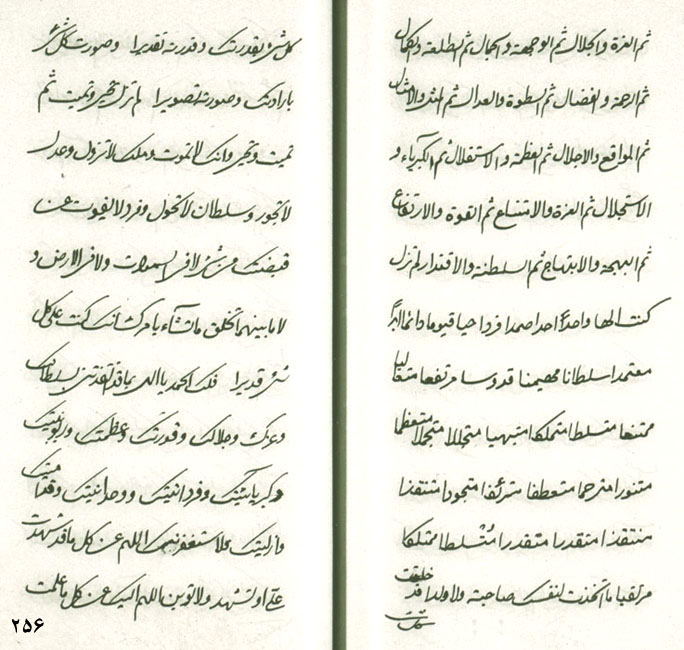 ثم العزة والجلال ثم الوجهة والجمال ثم الطلعة والكمال
ثم الرحمة والفضال ثم السطوة والعدال ثم المثل والامثال
ثم المواقع والاجلال ثم العظمة والاستقلال ثم الكبرياء و
الاستجلال ثم العزة والامتناع ثم القوة والارتفاع
ثم البهجة والابتهاج ثم السلطنة والاقتدار لم تزل
كنت الها واحدا احدا صمدا فردا حيا قيوما دائما ابدا
معتمدا سلطانا مهيمنا قدوسا مرتفعا متعاليا
ممتنعا متسلطا متملكا مبتهيا متجللا متجملا متعظما
متنورا مترحما متعطفا مترئفا متجودا
متقدرا متسلطا ممتلكا
مرتقبا ما اتخذت لنفسك صاحبة ولا ولدا قد خلقت
كل شئ بقدرتك وقدرته تقديرا وصورت كل شئ
بارادتك وصورته تصويرا لم تزل تحيي وتميت ثم
تميت وتحيي وانك حي لا تموت وملك لا تزول وعدل
لا تجور وسلطان لا تحول وفرد لا يفوت عن
قبضتك من شئ لا في السموات ولا في الارض و
لا ما بينهما تخلق ما تشآء بامرك انك كنت على كل
شئ قديرا فلك الحمد يا الهي بما قد بسلطانك
وعزتك وجلالك وقدرتك وعظمتك وربوبيتك
وكبريائيتك وفردانيتك ووحدانيتك
وازليتك فلاستغفرنك اللهم عن كل ما قد شهدت
علي او تشهد ولاتوبن اللهم اليك عن كل ما علمت
٢٥٦